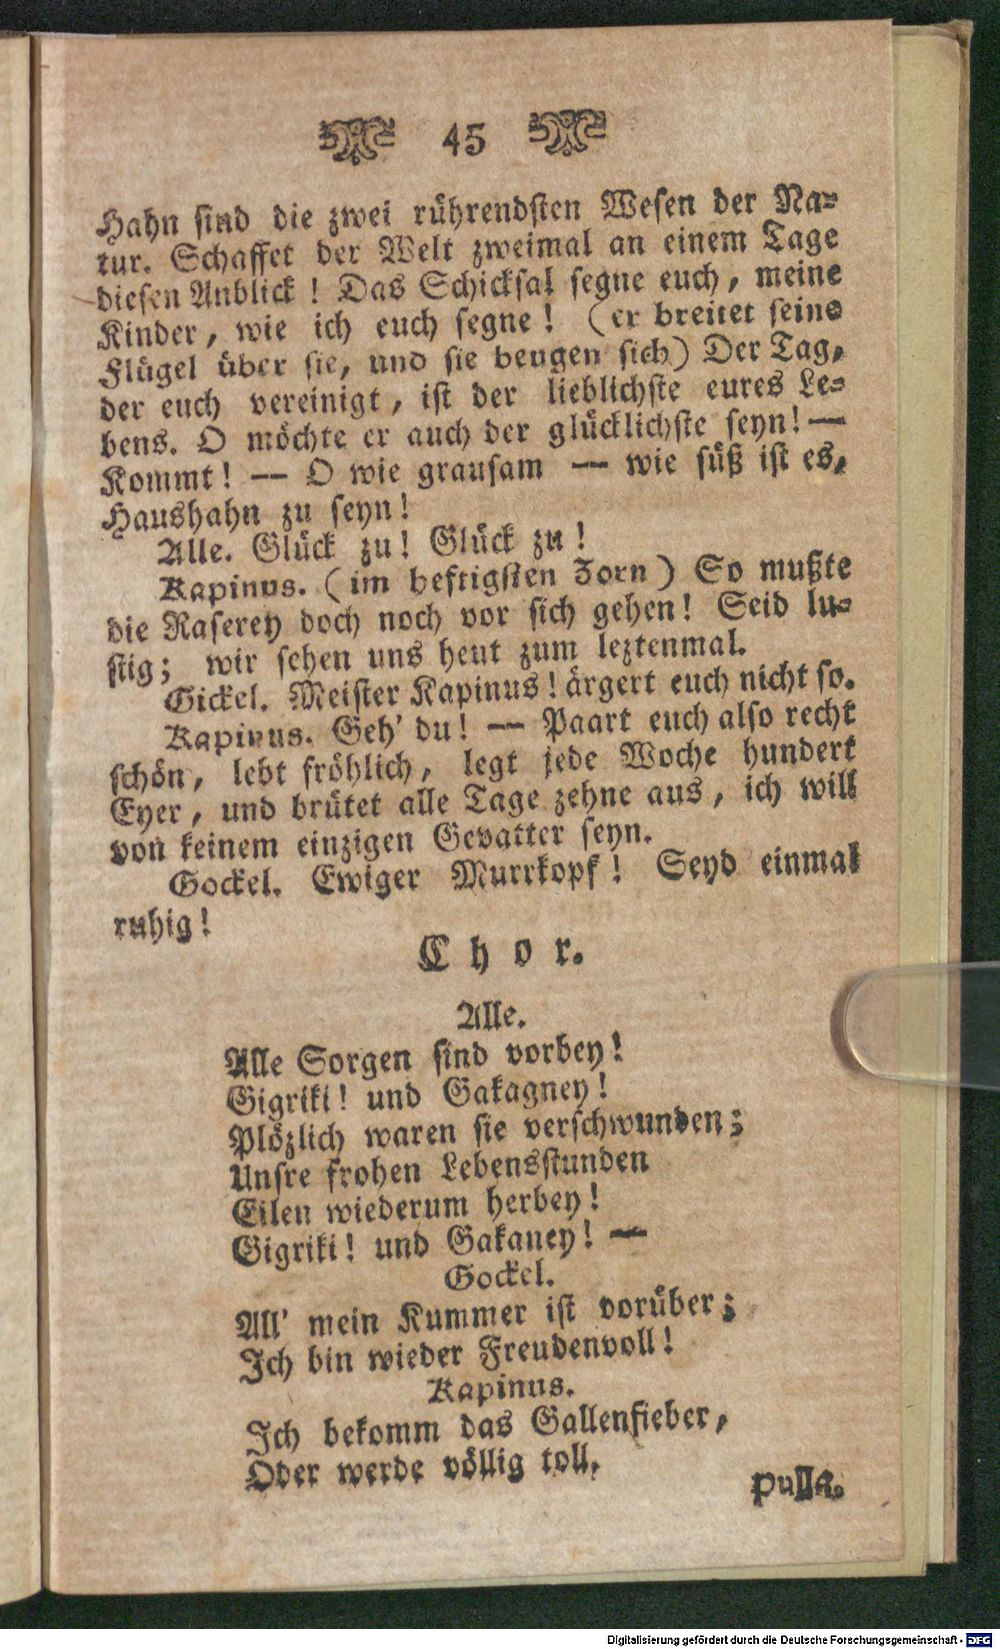 45
Hahn sind die zwei rührendsten Wesen der Na-
tur. Schaffet der Welt zweimal an einem Tage
diesen Anblick! Das Schicksal segne euch, meine
Kinder, wie ich euch segne! (er breitet seine
Flügel über sie, und sie beugen sich) Der Tag,
der euch vereinigt, ist der lieblichste eures Le-
bens. O möchte er auch der glücklichste seyn! —
Kommt! — O wie grausam — wie süß ist es,
Haushahn zu seyn!
Alle. Glück zu! Glück zu!
Kapinus. (im heftigsten Zorn) So mußte
die Raserey doch noch vor sich gehen! Seid lu-
stig; wir sehen uns heut zum leztenmal.
Gickel. Meister Kapinus! ärgert euch nicht so.
Kapinus. Geh' du! — Paart euch also recht
schön, lebt fröhlich, legt jede Woche hundert
Eyer, und brütet alle Tage zehne aus, ich will
von keinem einzigen Gevatter seyn.
Gockel. Ewiger Murrkopf! Seyd einmal
ruhig!
Chor.
Alle.
Alle Sorgen sind vorbey!
Gigriki! und Gakagney!
Plözlich waren sie verschwunden;
Unsre frohen Lebensstunden
Eilen wiederum herbey!
Gigriki! und Gakaney! —
Gockel.
All' mein Kummer ist vorüber;
Ich bin wieder Freudenvoll!
Kapinus.
Ich bekomm das Gallenfieber,
Oder werde völlig toll.
Pulla.
Digitalisierung gefördert durch die Deutsche Forschungsgemeinschaft - DFG